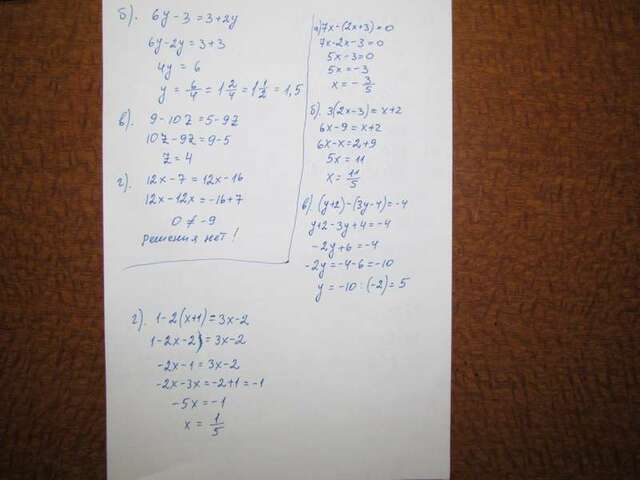 б). 6y - 3 = 3 + 2y
6y - 2y = 3 + 3
4y = 6
y = 6/4 = 1 2/4 = 1 1/2 = 1,5
в). 9 - 10z = 5 - 9z
10z - 9z = 9 - 5
z = 4
г). 12x - 7 = 12x - 16
12x - 12x = -16 + 7
0 ≠ -9
решения нет!
а) 7x - (2x + 3) = 0
7x - 2x - 3 = 0
5x - 3 = 0
5x = -3
x = - 3/5
б). 3(2x - 3) = x + 2
6x - 9 = x + 2
6x - x = 2 + 9
5x = 11
x = 11/5
в). (y + 2) - (3y - 4) = -4
y + 2 - 3y + 4 = -4
-2y + 6 = -4
-2y = -4 - 6 = -10
y = -10 : (-2) = 5
г). 1 - 2(x + 1) = 3x - 2
1 - 2x - 2 = 3x - 2
-2x - 1 = 3x - 2
-2x - 3x = -2 + 1 = -1
-5x = -1
x = 1/5